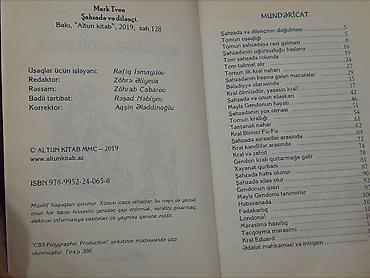 Mark Tven
Şahzadə və dilənçi.
Bakı, "Altun kitab", 2019, səh.128
Uşaqlar üçün işləyəni: Rafiq İsmayılov
Redaktor: Zöhrə Əliyeva
Rəssam: Zöhrab Cabarov
Bədii tərtibat: Rəşad Nəbiyev
Korrektor: Aqşin Ələddinoğlu
© ALTUN KİTAB MMC – 2019
www.altunkitab.az
ISBN 978-9952-24-065-8
Müəllif hüquqları qorunur. Xüsusi icazə olmadan bu nəşri və yaxud
onun hər hansı hissəsini yenidən çap etdirmək, surətini çıxarmaq,
elektron informasiya vasitələri ilə yaymaq qanuna ziddir.
"CBS Polygraphic Production" şirkətinin mətbəəsində çap
olunmuşdur. Tiraj 300.
MÜNDƏRİCAT
Şahzadə və dilənçinin doğulması 5
Tomun uşaqlığı
Tomun şahzadəyə rast gəlməsi
Şahzadənin uğursuzluğu başlanır
Tom şahzadə rolunda
Tom təlimat alır
Tomun ilk kral naharı
Şahzadənin başına gələn macəralar
Bələdiyyə idarəsində
Kral ölmüşdür, yaşasın kral!
Şahzadə və onun xilaskarı
Mayls Gendonun həyatı
Şahzadənin yox olması
Tomun krallığı
Təntənəli nahar
Kral Birinci Fu-Fu
Şahzadə sərsərilər arasında
Kral kəndlilər arasında
Kral və zahid
Gendon kralı qurtarmağa gəlir
Xəyanət qurbanı
Şahzadə həbs olunur
Şahzadə xilas olur
Gendonun qəsri
Mayls Gendonu tanımırlar
Həbsxanada
Fədakarlıq
Londona!
Mərasimə hazırlıq
Tacqoyma mərasimi
Kral Eduard
Ədalət məhkəməsi və intiqam